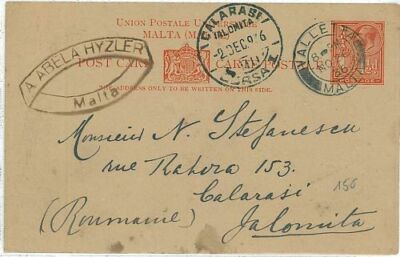 UNION POSTALE UNIVERSELLE
MALTA (MALTE)
POST CARD
CARTE POSTALE
THE ADDRESS ONLY TO BE WRITTEN ON THIS SIDE
A. ABELA HYZLER
Malta
CALARASI
JALOMITA
-2.DEC.926
VALLETTA
MALTA
Monsieur N. Stefanescu
rue Rahova 153.
Calarasi
(Roumanie) Jalomita
156